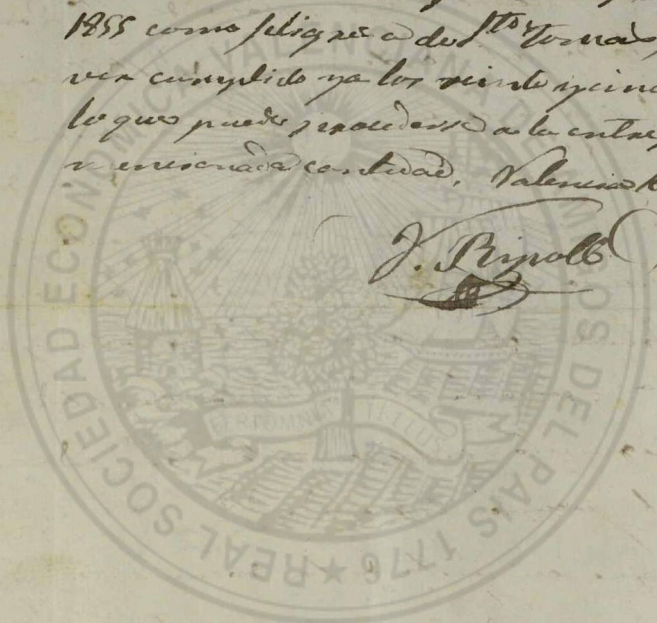 1855 como feligresa de Sto Tomas,
ver cumplido ya los veinte y cinc
lo que puede procederse a la entre
mencionada cantidad. Valencia
J. Ripoll
REAL SOCIEDAD ECONOMICA VALENCIANA DE AMIGOS DEL PAIS 1776 ★
FERT OMNIA TELLUS